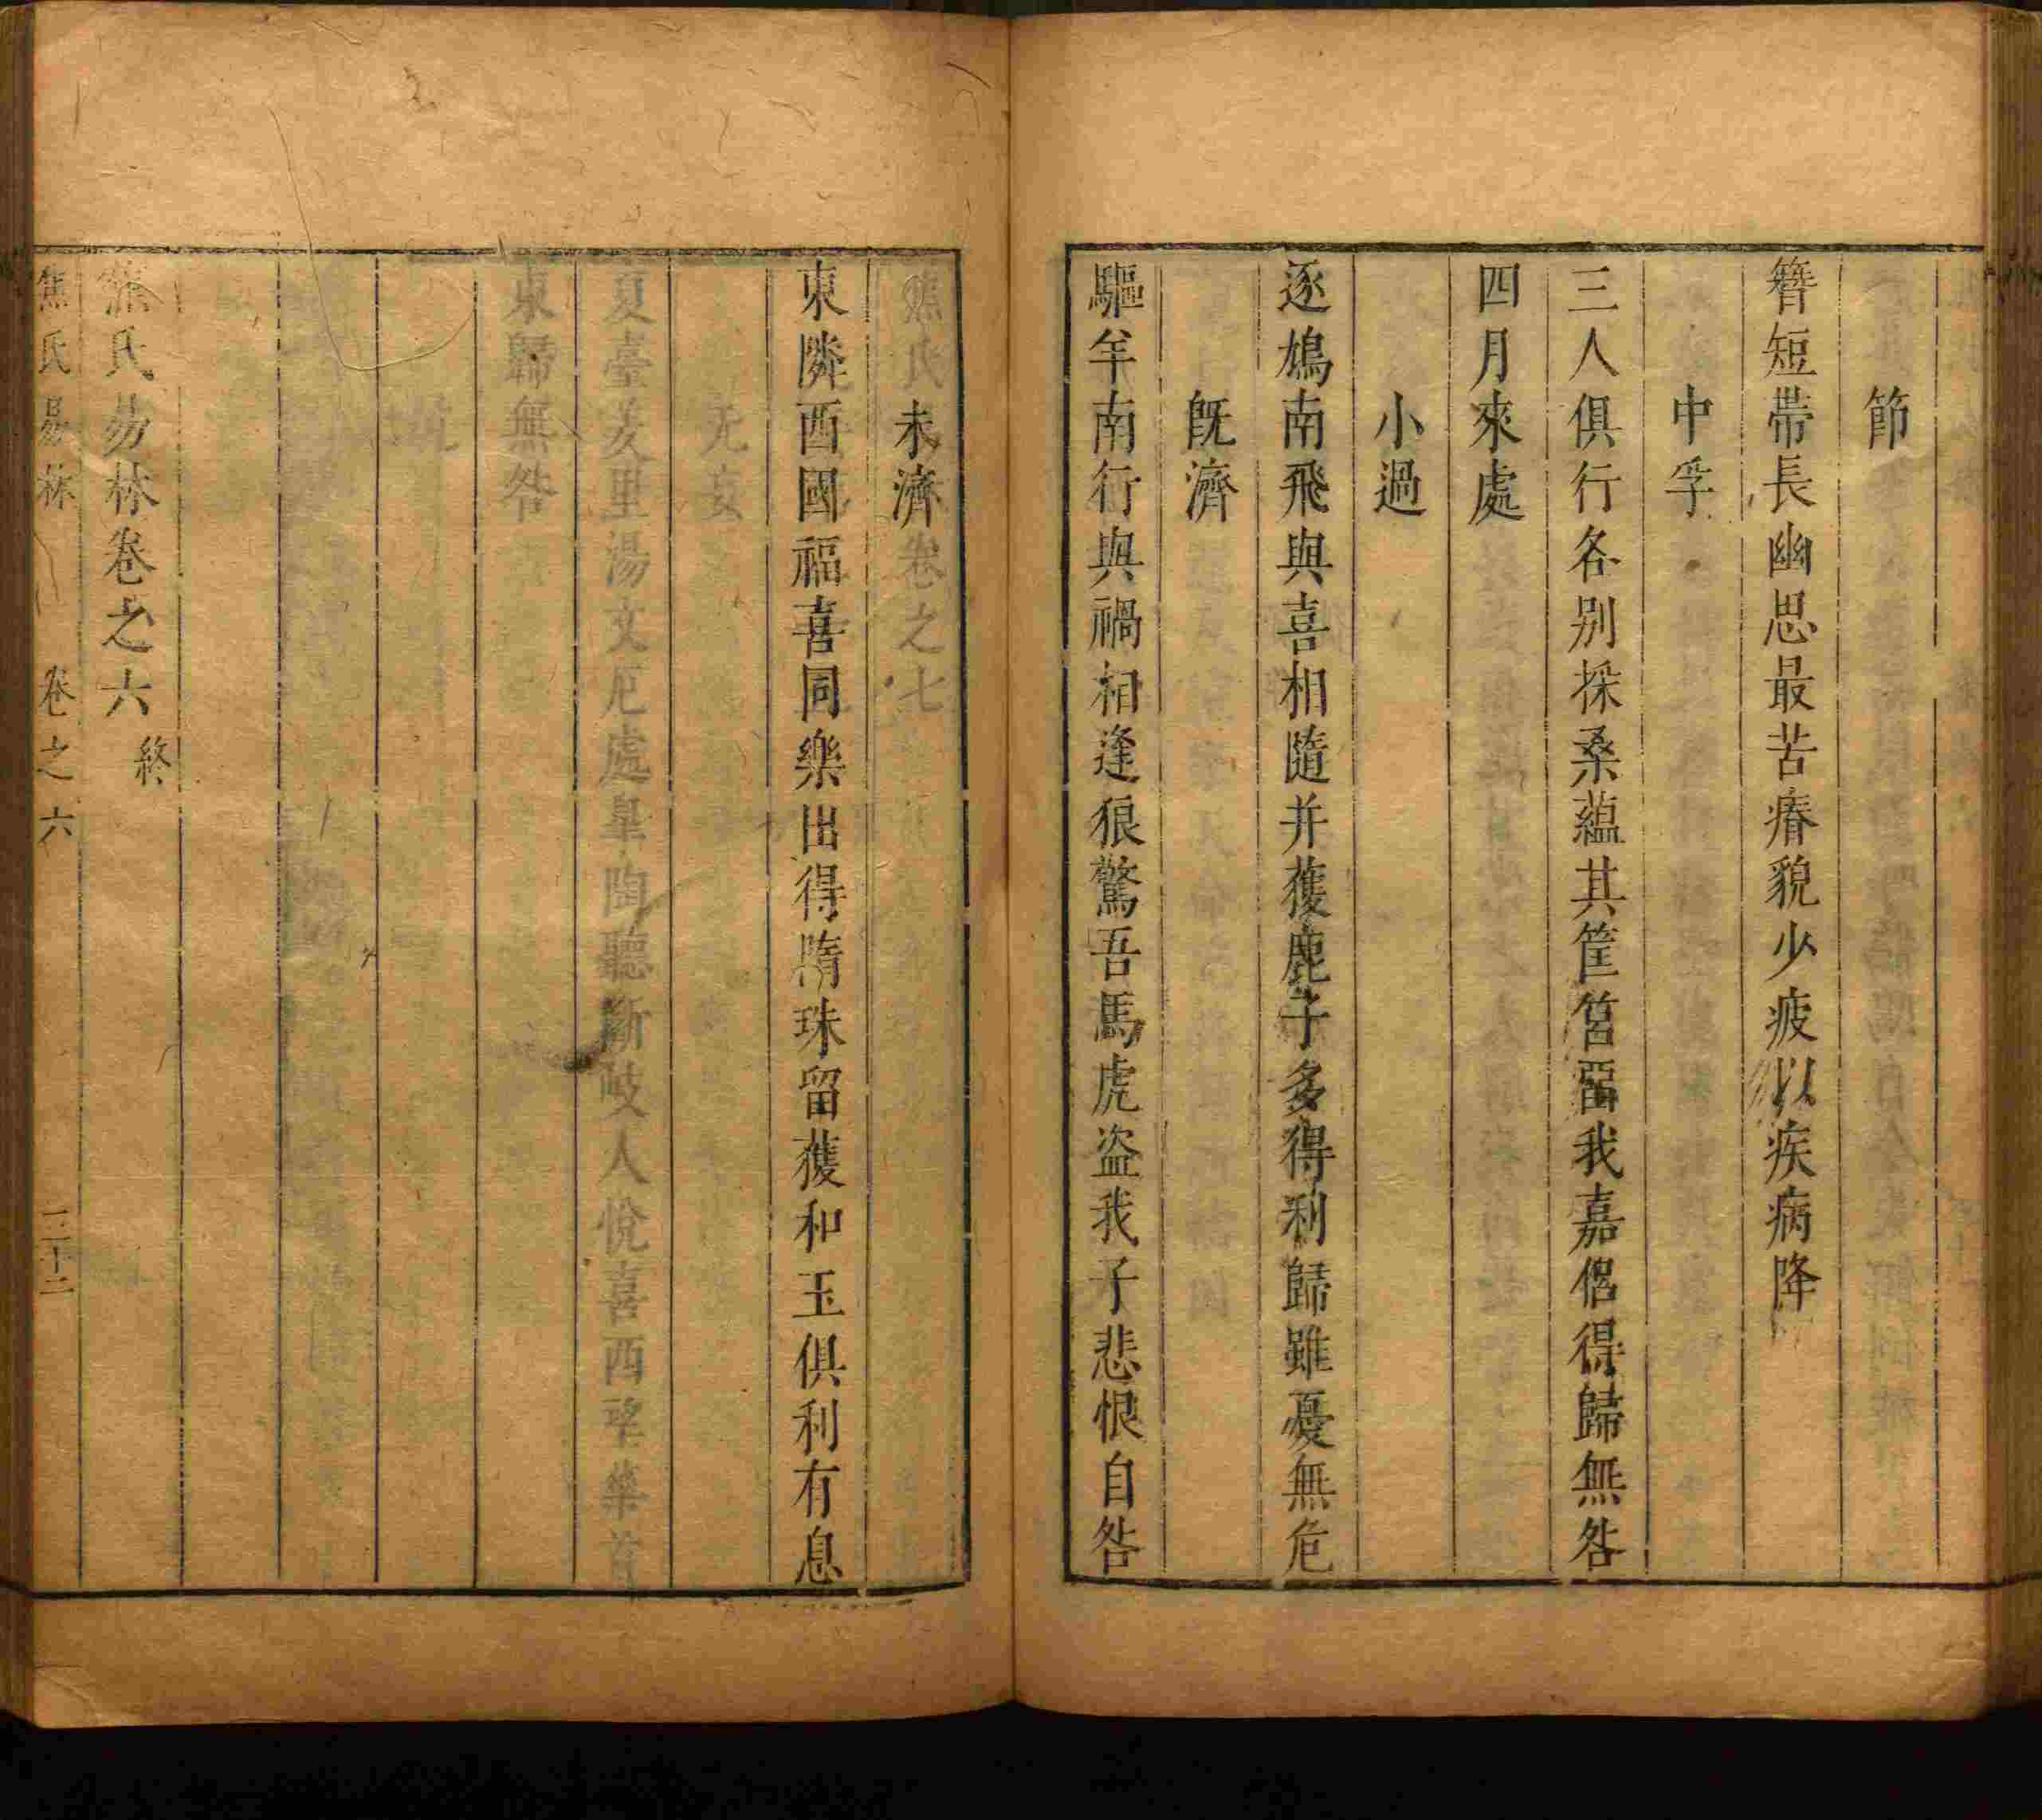 節
簪短帶長幽思最苦瘠貌少疲以疾病降
中孚
三人俱行各别採桑蘊其筐筥留我嘉侶得歸無咎
四月來處
小過
逐鳩南飛與喜相隨并獲鹿子多得利歸雖憂無危
旣濟
驅羊南行與禍相逢狼驚吾馬虎盜我子悲恨自咎
未濟
東隣西國福喜同樂出得隋珠留獲和玉俱利有息
焦氏易林卷之六 終
焦氏易林 卷之六